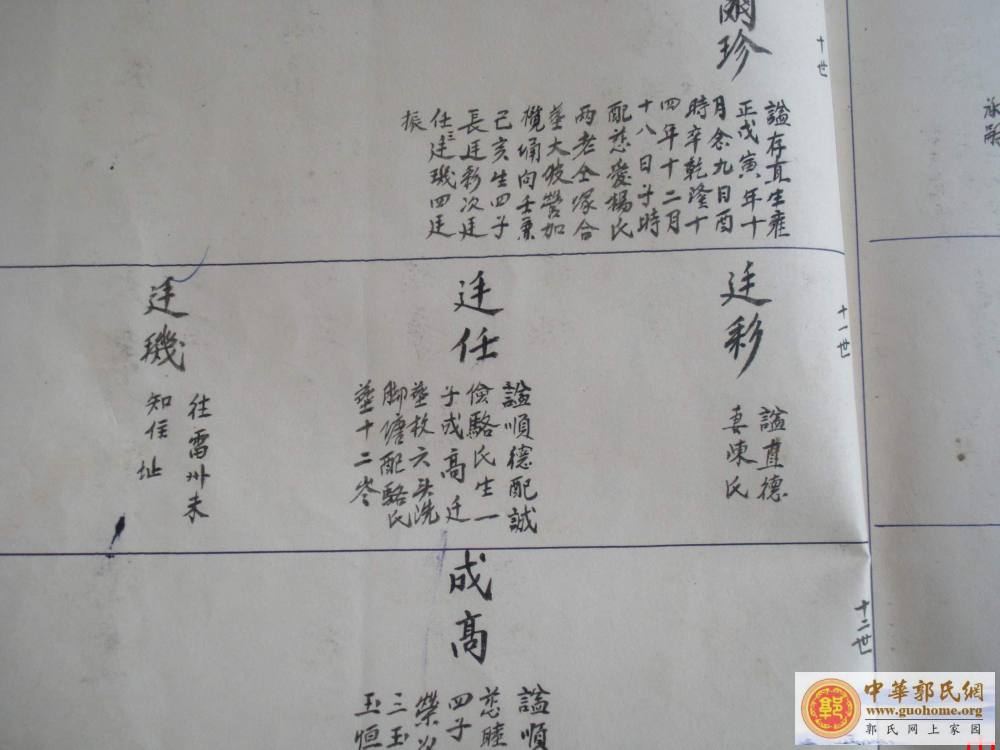 十世
爾珍
諡存直生雍
正戊寅年十
月念九日酉
時卒乾隆十
四年十二月
十八日子時
配慈愛楊氏
兩老仝塚合
塟大坡營加
欖埇向壬兼
己亥生四子
長廷彩次廷
任三廷璣四廷
振
十一世
廷彩
諡直德
妻陳氏
廷任
諡順德配誠
儉駱氏生一
子成高迁
塟枚六头洗
脚塘配駱氏
塟十二岑
廷璣
往雷州未
知住址
十二世
成高
諡順
慈睦
四子
榮
三玉
玉恒
中華郭氏網
www.guohome.org
郭氏网上家园